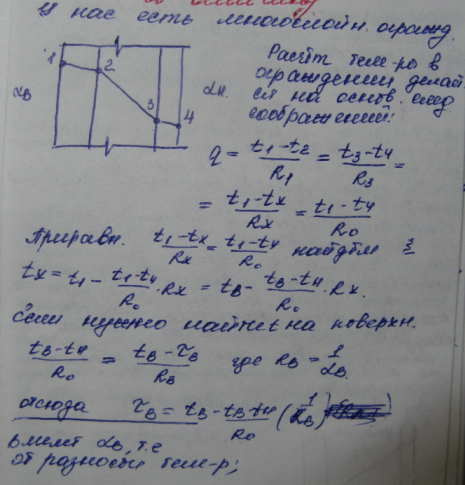 У нас есть многослойн. огражд.
1 2 3 4
αв αн.
Расчёт темп-ры в
ограждении делает
ся на основ. след
соображений:
q = t1-t2/R1 = t3-t4/R3 =
= t1-tx/Rx = t1-t4/R0
Приравн. t1-tx/Rx = t1-t4/R0 найдём
tx = t1 - t1-t4/R0 · Rx = tв - tв-tн/R0 · Rx.
Если нужно найти t на поверхн.
tв-tн/R0 = tв-τв/Rв где Rв = 1/αв.
отсюда τв = tв - tв-tн/R0 (1/αв)
αв, т.е
от разности темп-р;